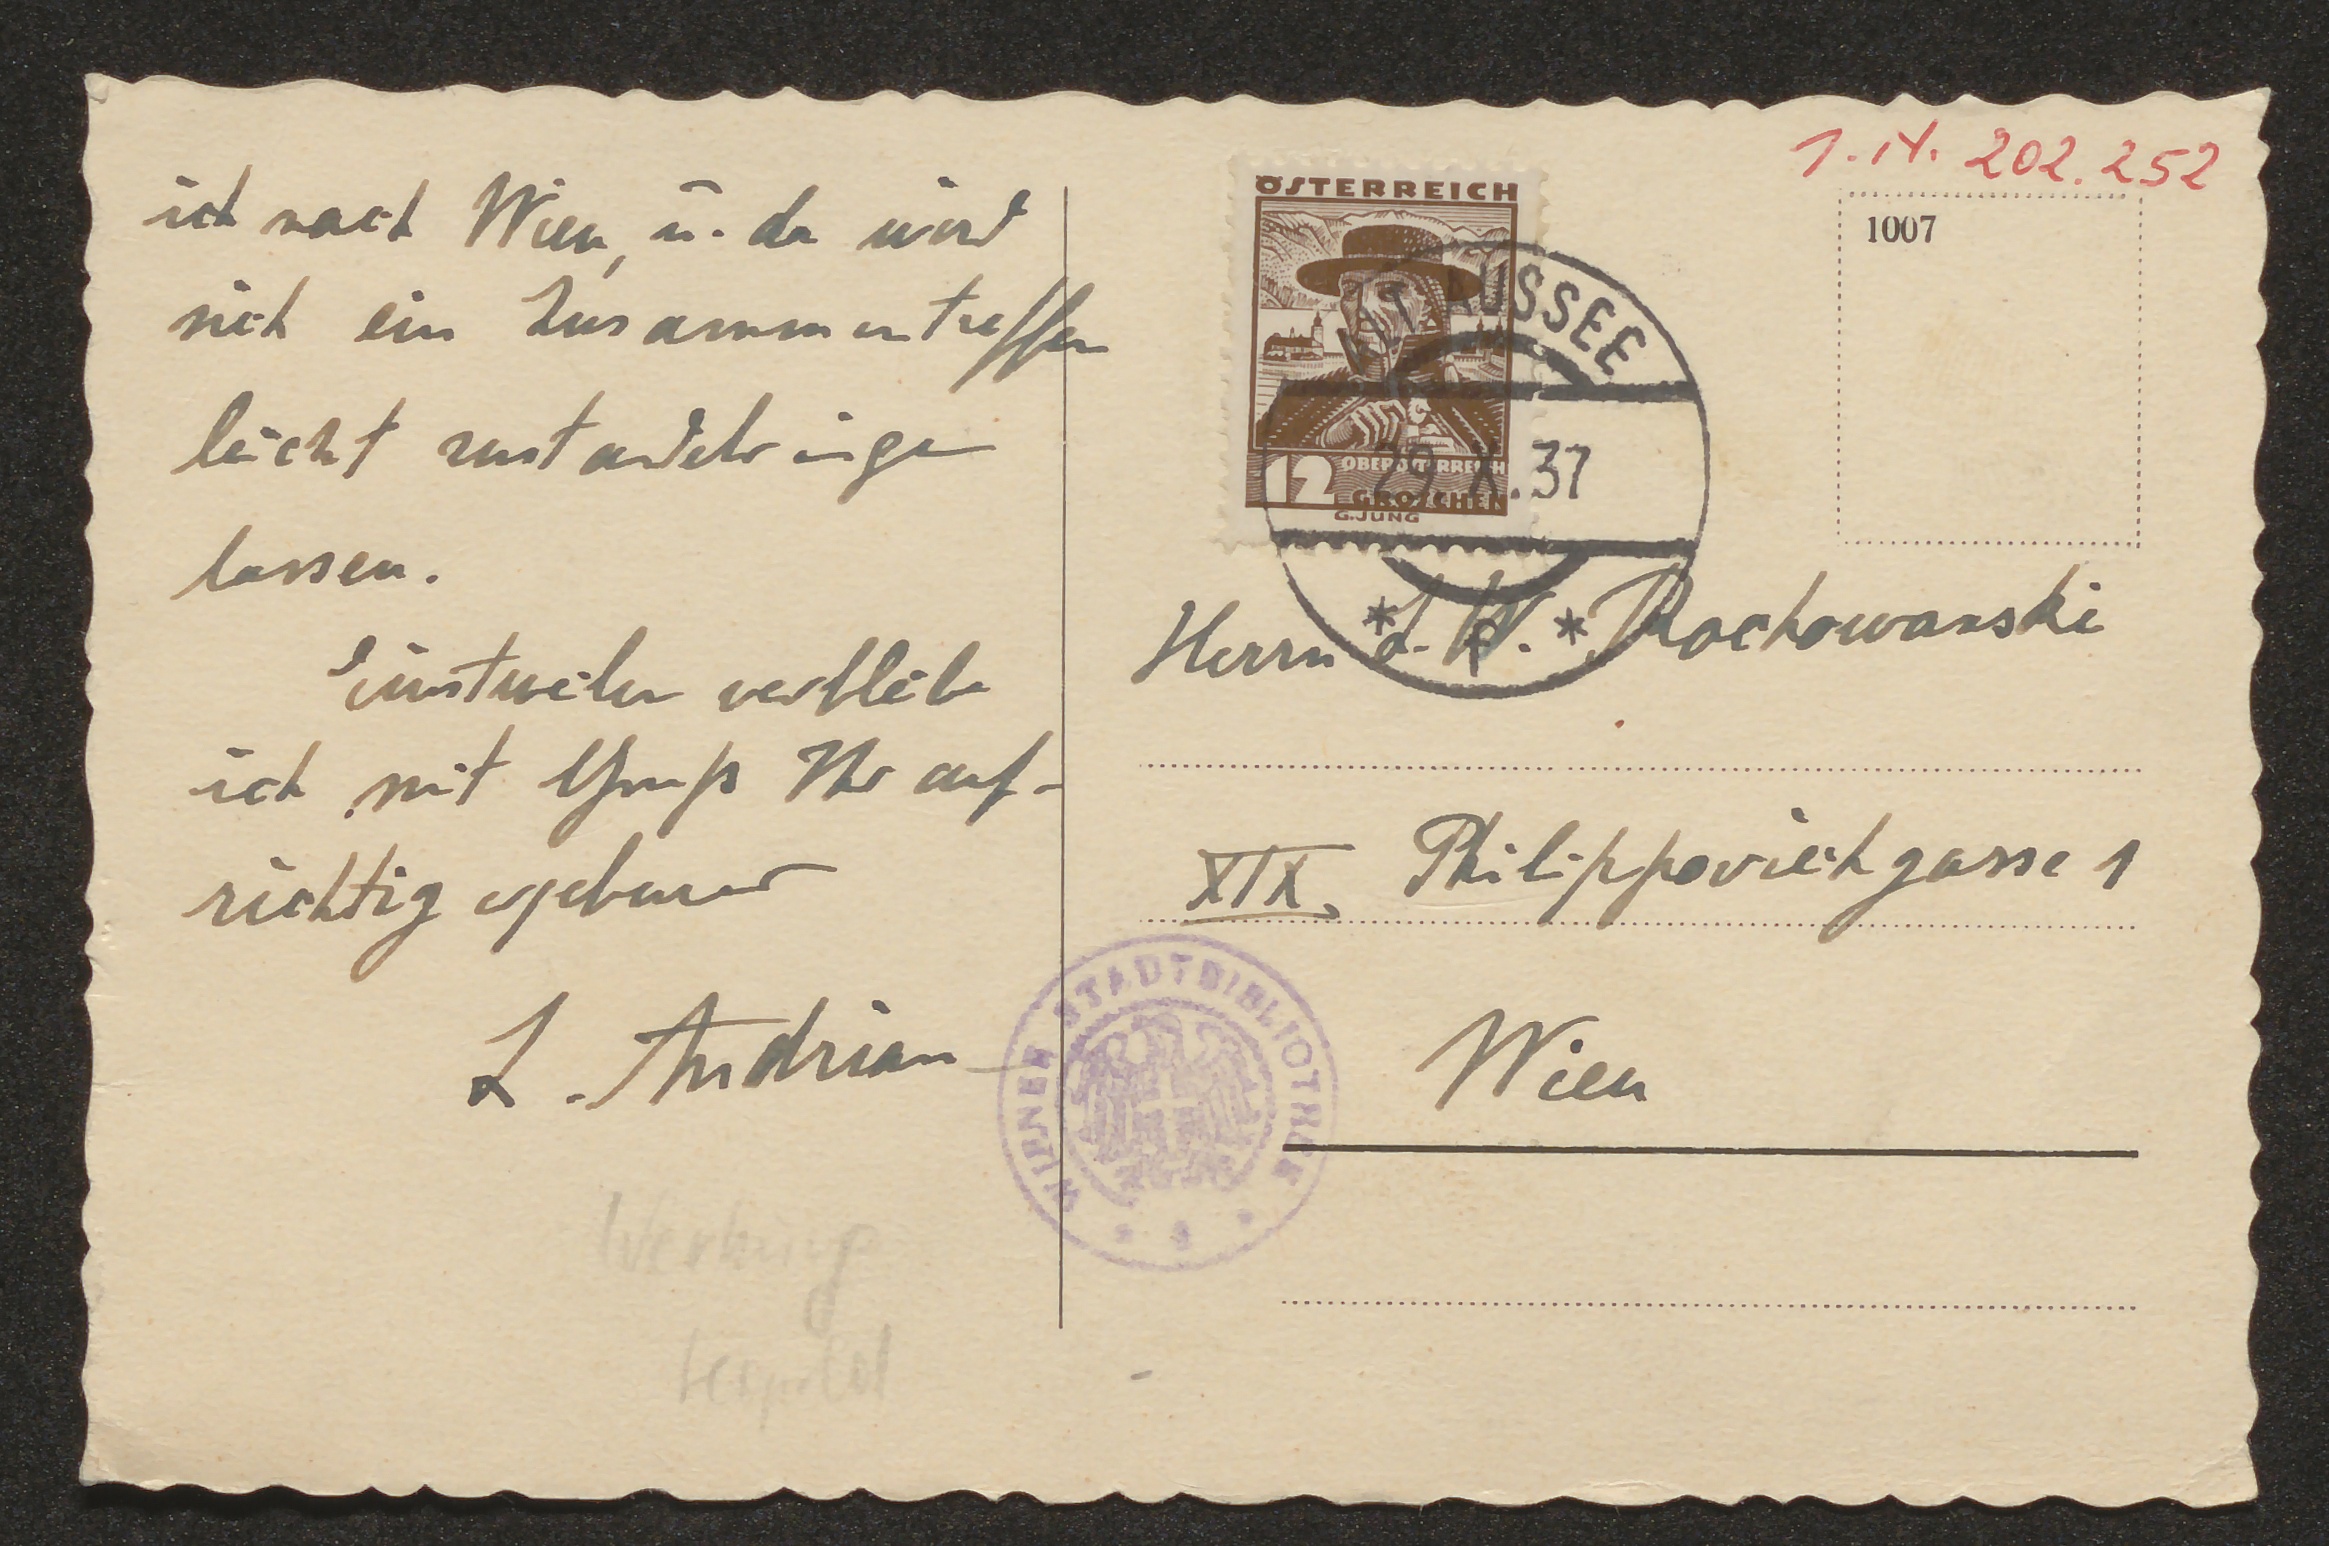 ich nach Wien, u. da wird
sich ein Zusammentreffen
leicht zustandebringen
lassen.
Einstweilen verbleibe
ich mit Gruß Ihr auf-
richtig ergebener
L. Andrian
Werbung
Leopold
1. N. 202.252
1007
ÖSTERREICH
12
OBERÖSTERREICH
GROSCHEN
G. JUNG
ALT AUSSEE
29. X. 37
Herrn L. W. Rochowanski
XIX. Philippovichgasse 1
Wien
WIENER STADTBIBLIOTHEK